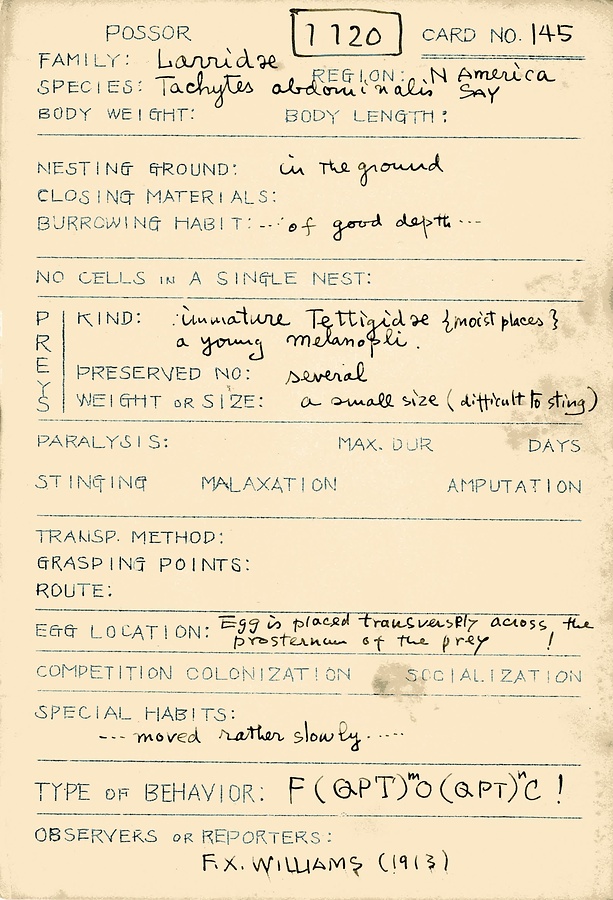 POSSOR 1120 CARD NO. 145
FAMILY: Larridae
REGION: N America
SPECIES: Tachytes abdominalis SAY
BODY WEIGHT: BODY LENGTH:
NESTING GROUND: in the ground
CLOSING MATERIALS:
BURROWING HABIT: --- of good depth ---
NO CELLS IN A SINGLE NEST:
PREYS
KIND: immature Tettigidae {moist places}
a young melanopli.
PRESERVED NO: several
WEIGHT OR SIZE: a small size (difficult to sting)
PARALYSIS: MAX. DUR DAYS
STINGING MALAXATION AMPUTATION
TRANSP. METHOD:
GRASPING POINTS:
ROUTE:
EGG LOCATION: Egg is placed transversely across the
prosternum of the prey !
COMPETITION COLONIZATION SOCIALIZATION
SPECIAL HABITS:
--- moved rather slowly -----
TYPE OF BEHAVIOR: F(QPT)ᵐO(QPT)ⁿC !
OBSERVERS OR REPORTERS:
F.X. WILLIAMS (1913)